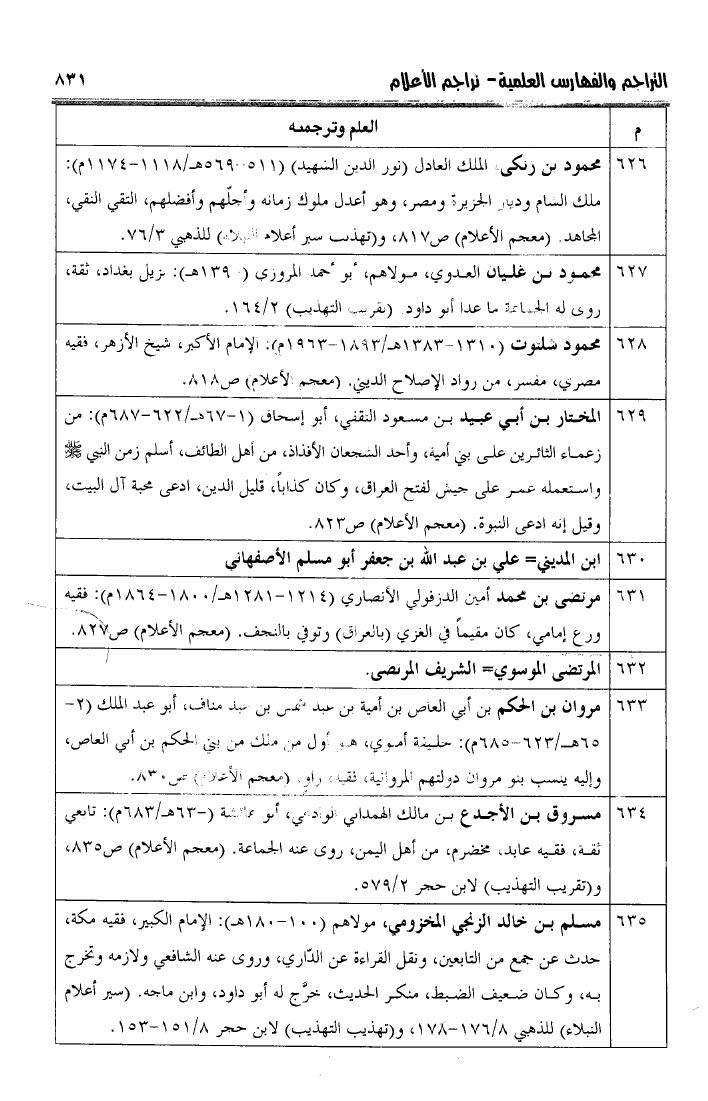 التراجم والفهارس العلمية - تراجم الأعلام ٨٣١
م العلم وترجمته
٦٢٦ محمود بن زنكي، الملك العادل (نور الدين الشهيد) (٥١١-٥٦٩هـ/١١١٨-١١٧٤م):
ملك الشام وديار الجزيرة ومصر، وهو أعدل ملوك زمانه وأجلّهم وأفضلهم، التقي النقي،
المجاهد. (معجم الأعلام) ص٨١٧، و(تهذيب سير أعلام النبلاء) للذهبي ٧٦/٣.
٦٢٧ محمود بن غليان العدوي، مولاهم، أبو أحمد المروزي ( -١٣٩هـ): نزيل بغداد، ثقة،
روى له الجماعة ما عدا أبو داود. (تقريب التهذيب) ١٦٤/٢.
٦٢٨ محمود شلتوت (١٣١٠-١٣٨٣هـ/١٨٩٣-١٩٦٣م): الإمام الأكبر، شيخ الأزهر، فقيه
مصري، مفسر، من رواد الإصلاح الديني. (معجم الأعلام) ص٨١٨.
٦٢٩ المختار بن أبي عبيد بن مسعود الثقفي، أبو إسحاق (١-٦٧هـ/٦٢٢-٦٨٧م): من
زعماء الثائرين على بني أمية، وأحد الشجعان الأفذاذ، من أهل الطائف، أسلم زمن النبي ﷺ
واستعمله عمر على جيش لفتح العراق، وكان كذاباً، قليل الدين، ادعى محبة آل البيت،
وقيل إنه ادعى النبوة. (معجم الأعلام) ص٨٢٣.
٦٣٠ ابن المديني= علي بن عبد الله بن جعفر أبو مسلم الأصفهاني
٦٣١ مرتضى بن محمد أمين الدزفولي الأنصاري (١٢١٤-١٢٨١هـ/١٨٠٠-١٨٦٤م): فقيه
ورع إمامي، كان مقيماً في الغزي (بالعراق) وتوفي بالنجف. (معجم الأعلام) ص٨٢٧.
٦٣٢ المرتضى الموسوي= الشريف المرتضى.
٦٣٣ مروان بن الحكم بن أبي العاص بن أمية بن عبد شمس بن عبد مناف، أبو عبد الملك (٢-
٦٥هـ/٦٢٣-٦٨٥م): خليفة أموي، هو أول من ملك من بني الحكم بن أبي العاص،
وإليه ينسب بنو مروان دولتهم المروانية، فقيه، راوٍ. (معجم الأعلام) ص٨٣٠.
٦٣٤ مسروق بن الأجدع بن مالك الهمداني الوادعي، أبو عائشة (-٦٣هـ/٦٨٣م): تابعي
ثقة، فقيه عابد، مخضرم، من أهل اليمن، روى عنه الجماعة. (معجم الأعلام) ص٨٣٥،
و(تقريب التهذيب) لابن حجر ٥٧٩/٢.
٦٣٥ مسلم بن خالد الزنجي المخزومي، مولاهم (١٠٠-١٨٠هـ): الإمام الكبير، فقيه مكة،
حدث عن جمع من التابعين، ونقل القراءة عن الدّاري، وروى عنه الشافعي ولازمه وتخرج
به، وكان ضعيف الضبط، منكر الحديث، خرَّج له أبو داود، وابن ماجه. (سير أعلام
النبلاء) للذهبي ١٧٦/٨-١٧٨، و(تهذيب التهذيب) لابن حجر ١٥١/٨-١٥٣.